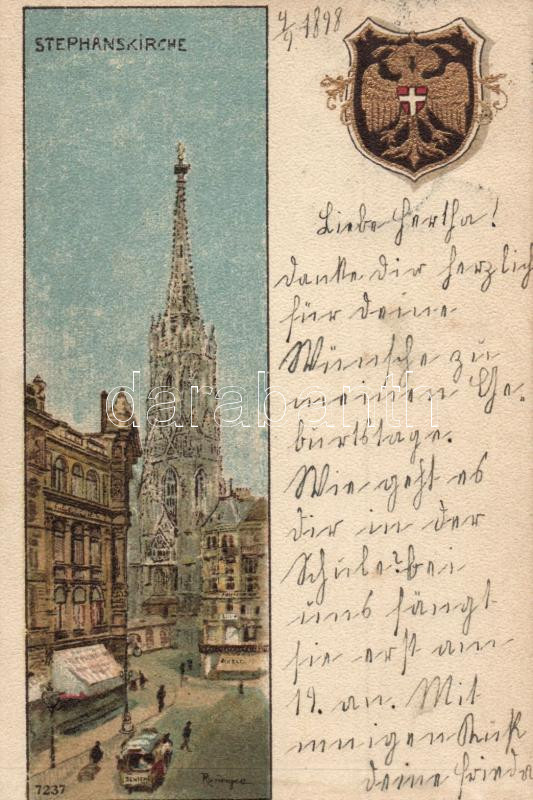 STEPHANSKIRCHE
4/9 1898
Liebe Hertha!
danke dir herzlich
für deine
Wünsche zu
meinem Ge-
burtstage.
Wie geht es
dir in der
Schule? bei
uns fängt
sie erst am
19. an. Mit
innigem Kuß
deine Frieda
darabanth
7237